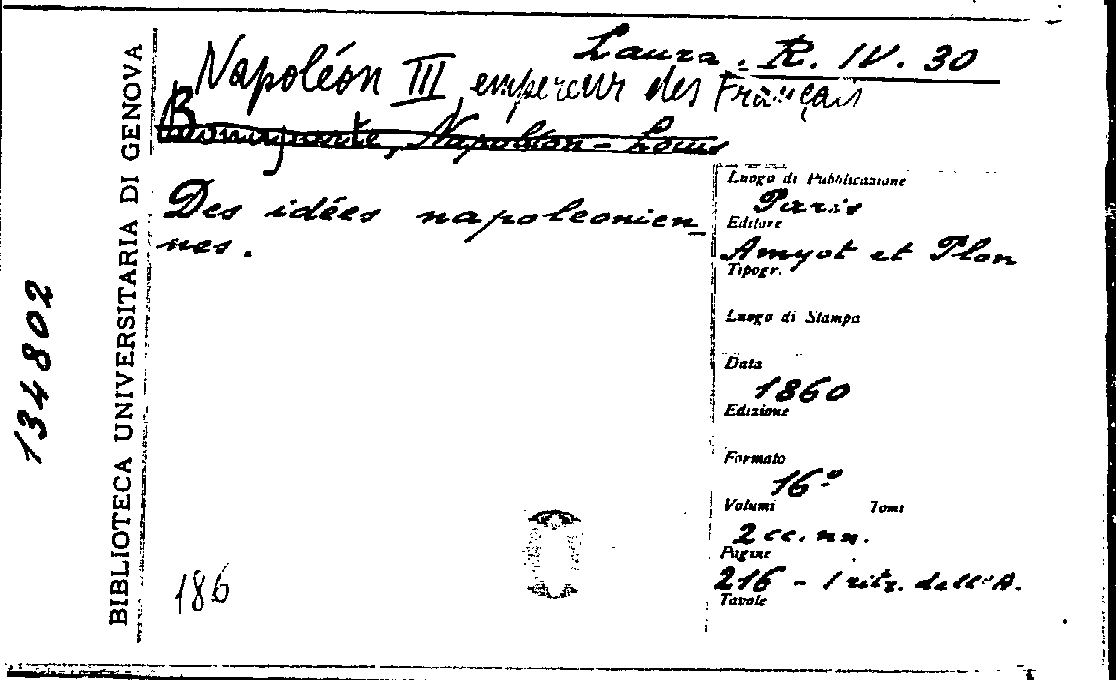 Laura. R. IV. 30
Napoléon III, empereur des Français
Bonaparte, Napoléon-Louis
Des idées napoleonien-
nes.
Luogo di Pubblicazione
Paris
Editore
Amyot et Plon
Tipogr.
Luogo di Stampa
Data
1860
Edizione
Formato
16°
Volumi Tomi
2 cc. nn.
Pagine
216 - 1 ritr. dell'A.
Tavole
186
BIBLIOTECA UNIVERSITARIA DI GENOVA
134802